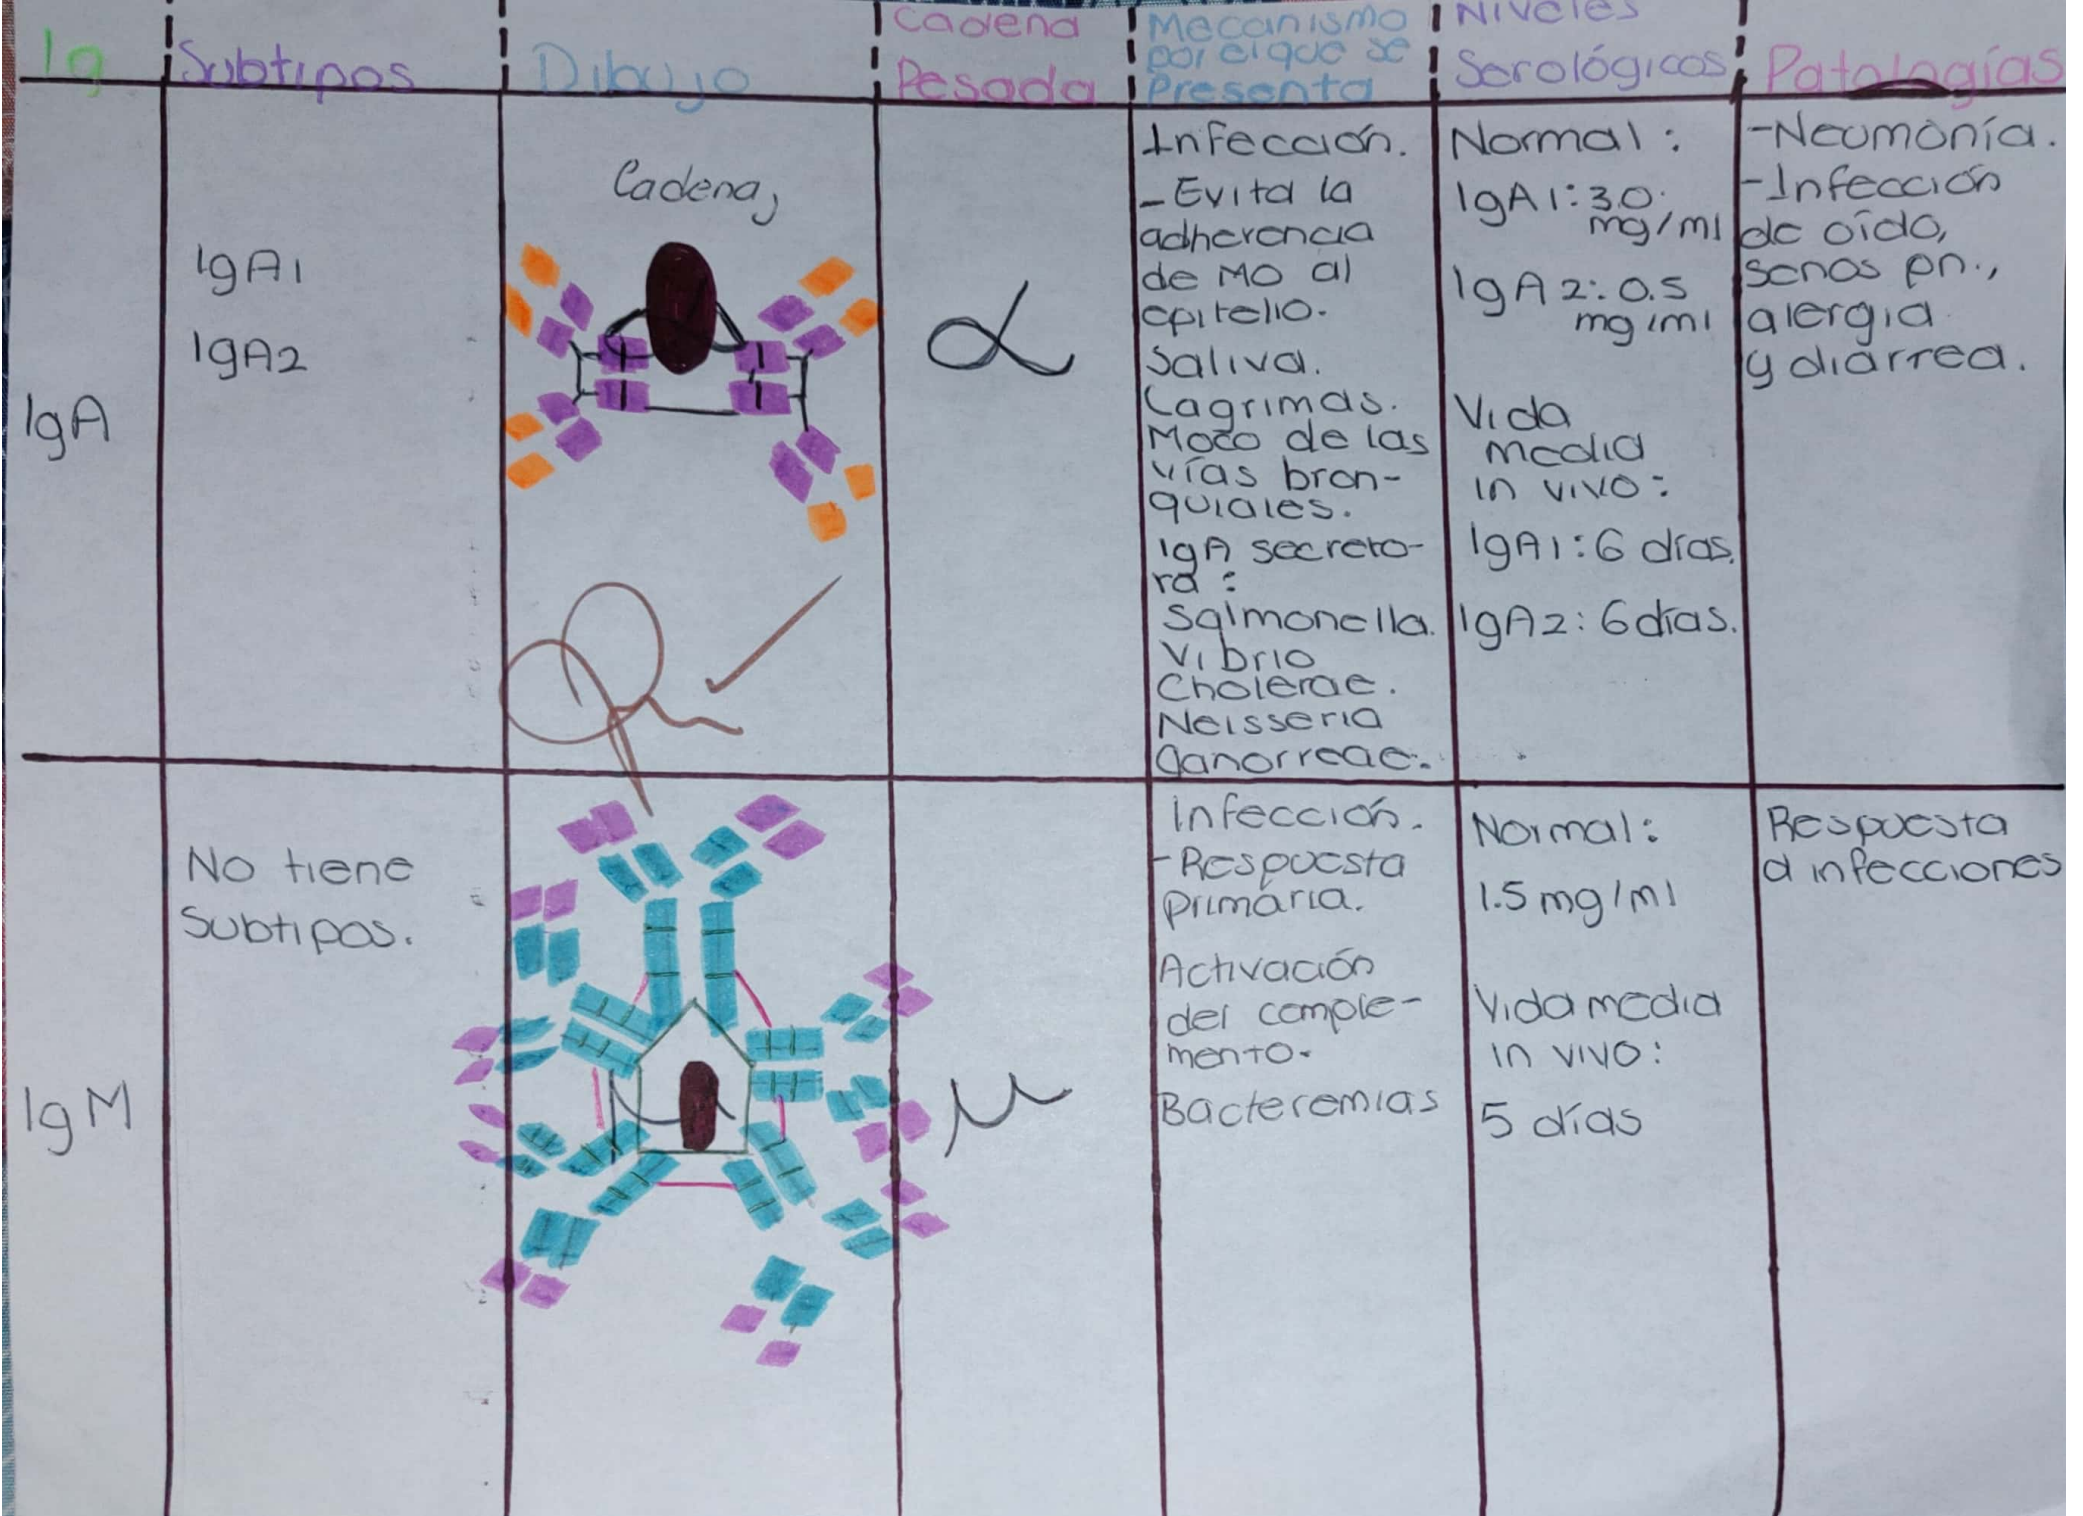 Ig
Subtipos
Dibujo
Cadena
Pesada
Mecanismo
por el que se
Presenta
Niveles
Serológicos
Patologías
IgA
IgA1
IgA2
Cadena J
α
Infección.
- Evita la
adherencia
de MO al
epitelio.
Saliva.
Lagrimas.
Moco de las
vías bron-
quiales.
IgA secreto-
ra:
Salmonella.
Vibrio
Cholerae.
Neisseria
Gonorreae.
Normal:
IgA1: 3.0
mg/ml
IgA2: 0.5
mg/ml
Vida
media
in vivo:
IgA1: 6 días.
IgA2: 6 días.
- Neumonía.
- Infección
de oído,
senos pn.,
alergia
y diarrea.
IgM
No tiene
Subtipos.
μ
Infección.
- Respuesta
primaria.
Activación
del comple-
mento.
Bacteremias
Normal:
1.5 mg/ml
Vida media
in vivo:
5 días
Respuesta
a infecciones